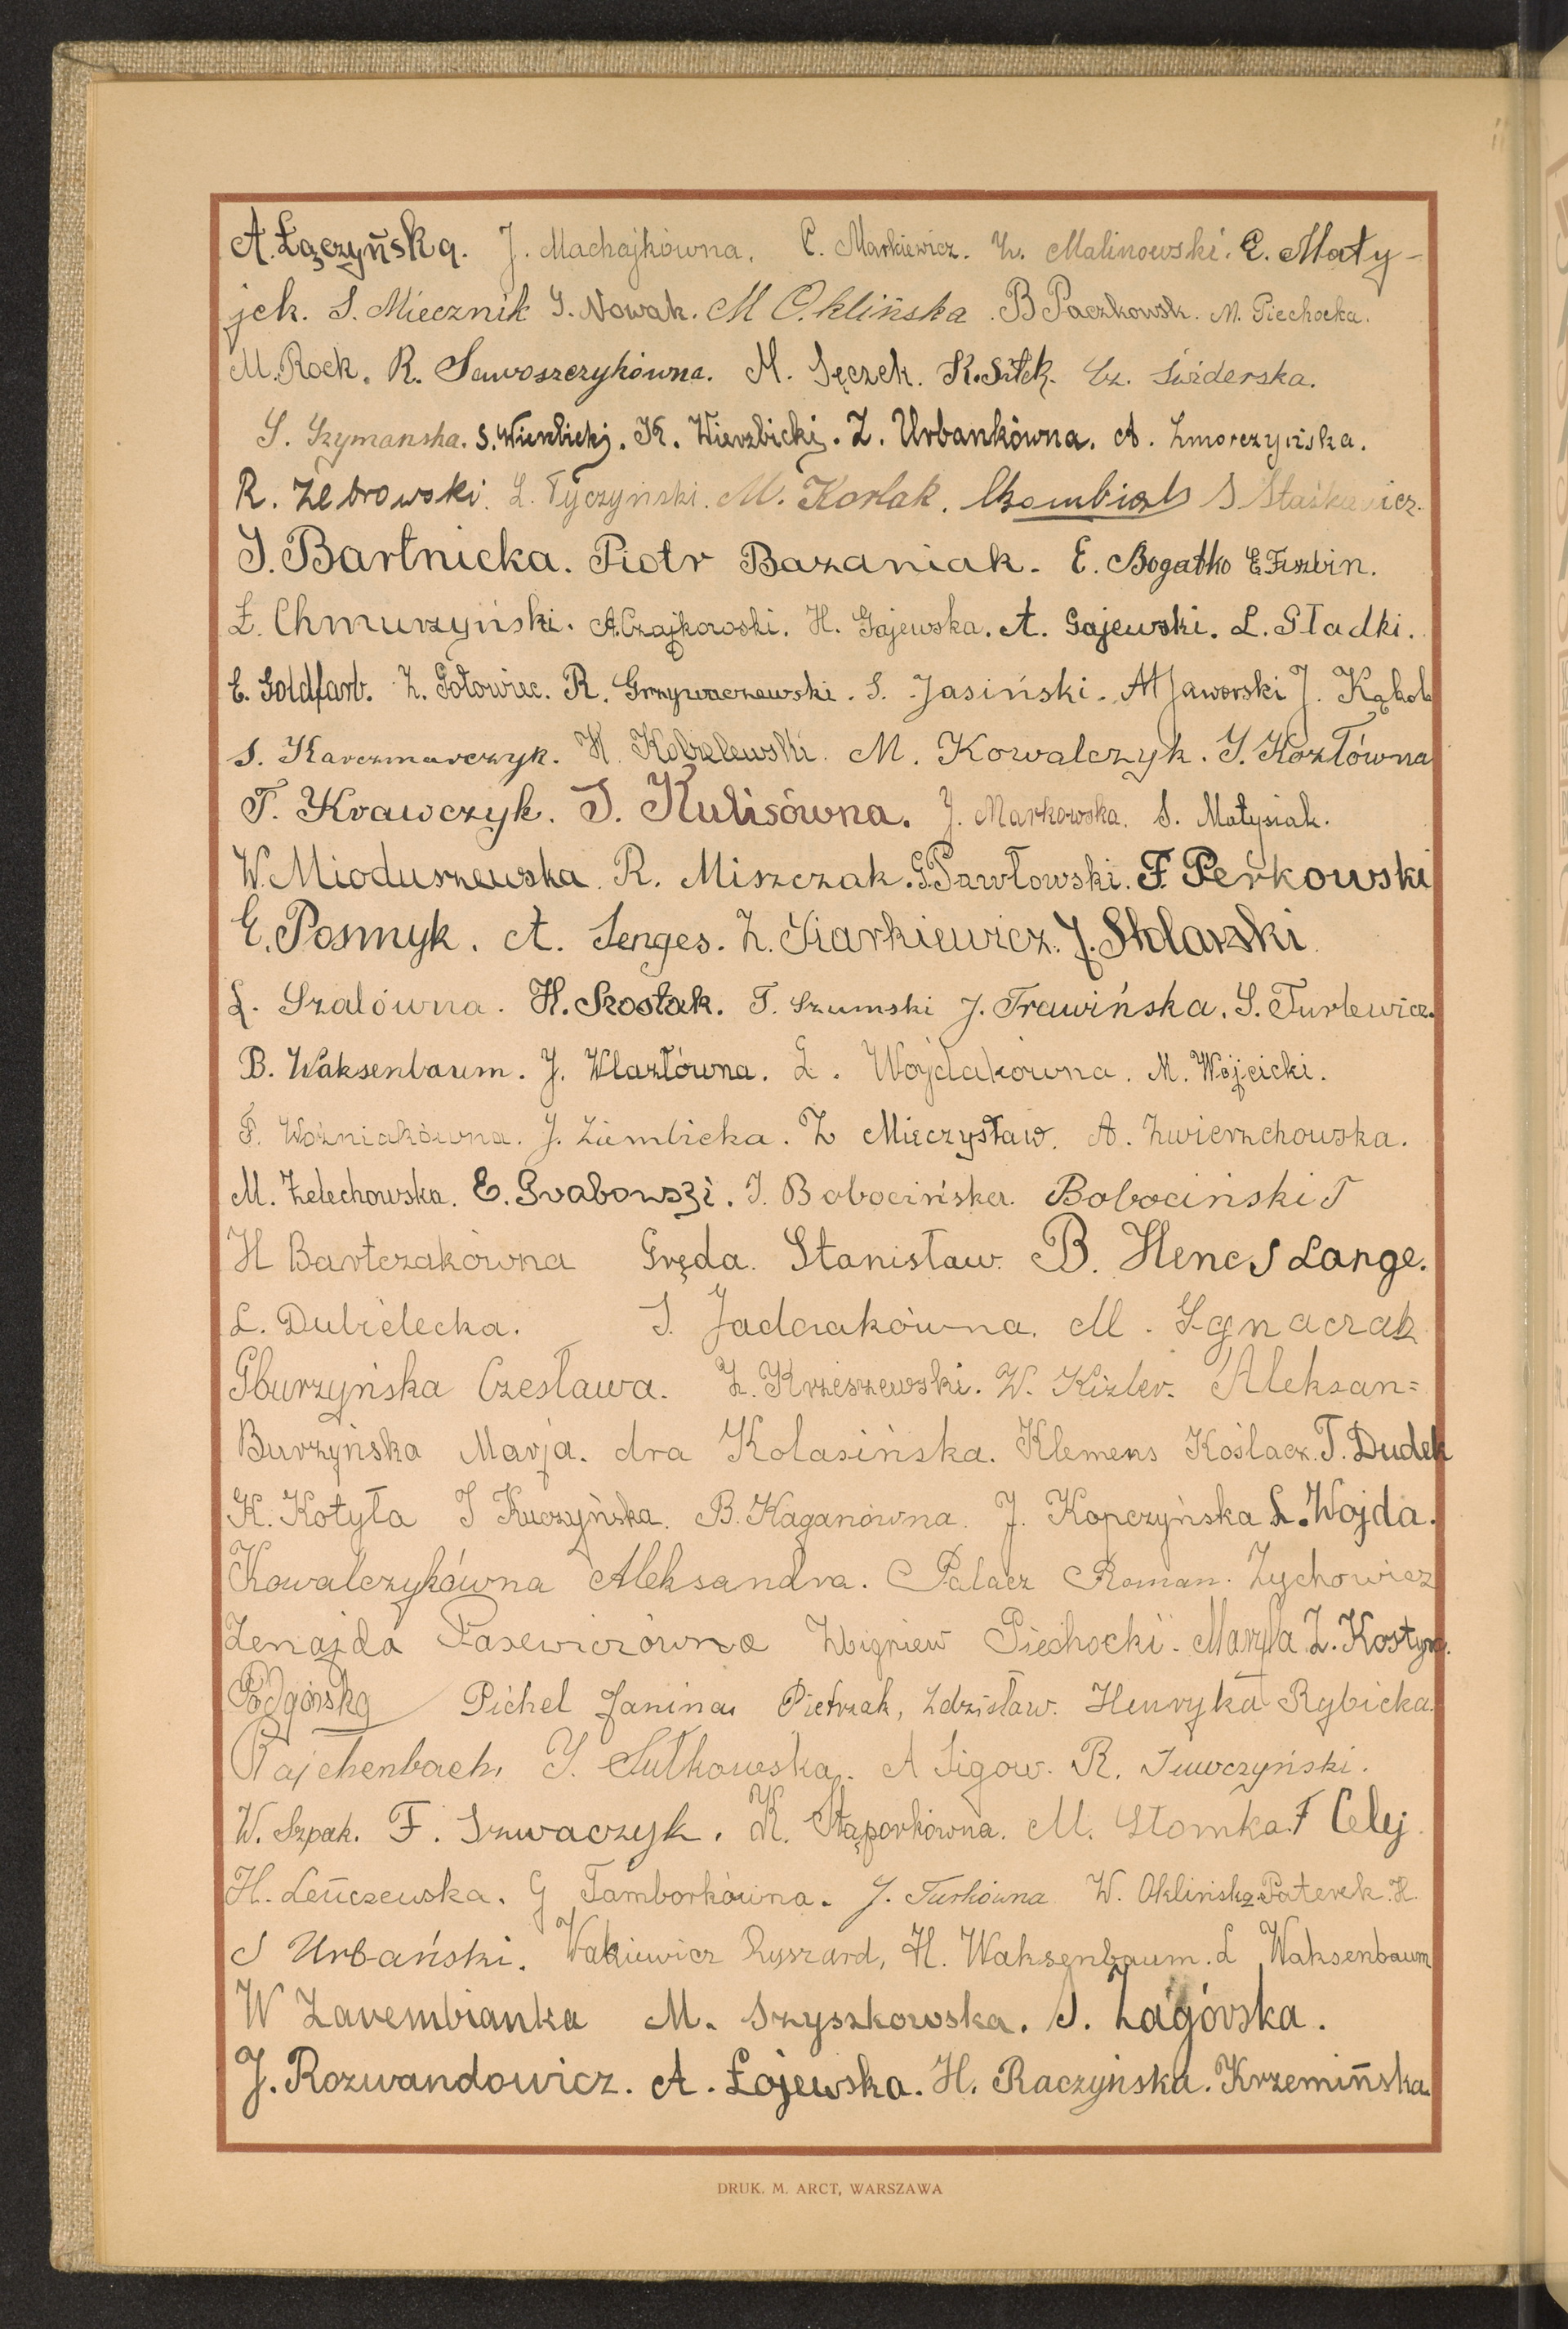 A. Łączyńska. J. Machajkówna. C. Markiewicz. Z. Malinowski. E. Maty-
jek. S. Miecznik J. Nowak. M Oklińska. B Paczkowsk. M. Piechocka.
M. Rock. R. Sawoszczykówna. M. Sęczek. K. Sitek. Cz. Świderska.
S. Szymanska. S. Wierzbicki. K. Wierzbicki. Z. Urbankówna. A. Zmorczyńska.
R. Żebrowski. L. Tyczyński. M. Korlak. S Staśkiewicz.
J. Bartnicka. Piotr Bazaniak. E. Bogatko E Fiszbin.
E. Chmurzyński. A. Czajkowski. H. Gajewska. A. Gajewski. L. Gładki.
E. Goldfarb. Z. Gołowiec. R. Grzywaczewski. S. Jasiński. A Jaworski J. Kąkol
S. Karczmarczyk. H. Kobzelewski. M. Kowalczyk. J. Kozłówna
T. Krawczyk. J. Kulisówna. J. Markowska. S. Matysiak.
W. Mioduszewska. R. Miszczak. G. Pawłowski. F. Perkowski
E. Posmyk. A. Senges. Z. Siarkiewicz. J. Stolarski.
L. Szalówna. H. Szostak. T. Szumski J. Trawińska. S. Turlewicz.
B. Waksenbaum. J. Wlazłówna. L. Wojdakówna. M. Wójcicki.
F. Woźniakówna. J. Ziembicka. Z Mieczysław. A. Zwierzchowska.
M. Żelechowska. E. Grabowski. J. Bobocińska. Bobociński T
H Bartczakówna Gręda. Stanisław. B. Henc S Lange.
L. Dubielecka. J. Jadczakówna. M. Ignaczak
Gburzyńska Czesława. Z. Krzeszewski. W. Kizler. Aleksan=
Burzyńska Marja. dra Kolasińska. Klemens Koślacz. T. Dudek
K. Kotyła J Kuczyńska. B. Kaganówna. J. Kopczyńska L. Wojda.
Kowalczykówna Aleksandra. Palacz Roman. Zychowicz
Zenajda Pasewiczówna Zbigniew Piechocki. Maryla Z. Kostyra.
Podgórska Pichel Janina. Pietrzak, Zdzisław. Henryka Rybicka.
Rajchenbach, J. Sułkowska. A Sigow. R. Suwczyński.
W. Szpak. F. Szwaczyk. K. Stąporkówna. M. Słomka. F Celej.
H. Leńczewska. G Tamborkówna. J. Turkówna W. Oklińska. Paterek. H.
S Urbański. Wakiewicz Ryszard, H. Waksenbaum. L Waksenbaum
W Zarembianka M. Szyszkowska. S. Zagórska.
J. Rozwandowicz. A. Łojewska. H. Raczyńska. Krzemińska.
DRUK. M. ARCT, WARSZAWA